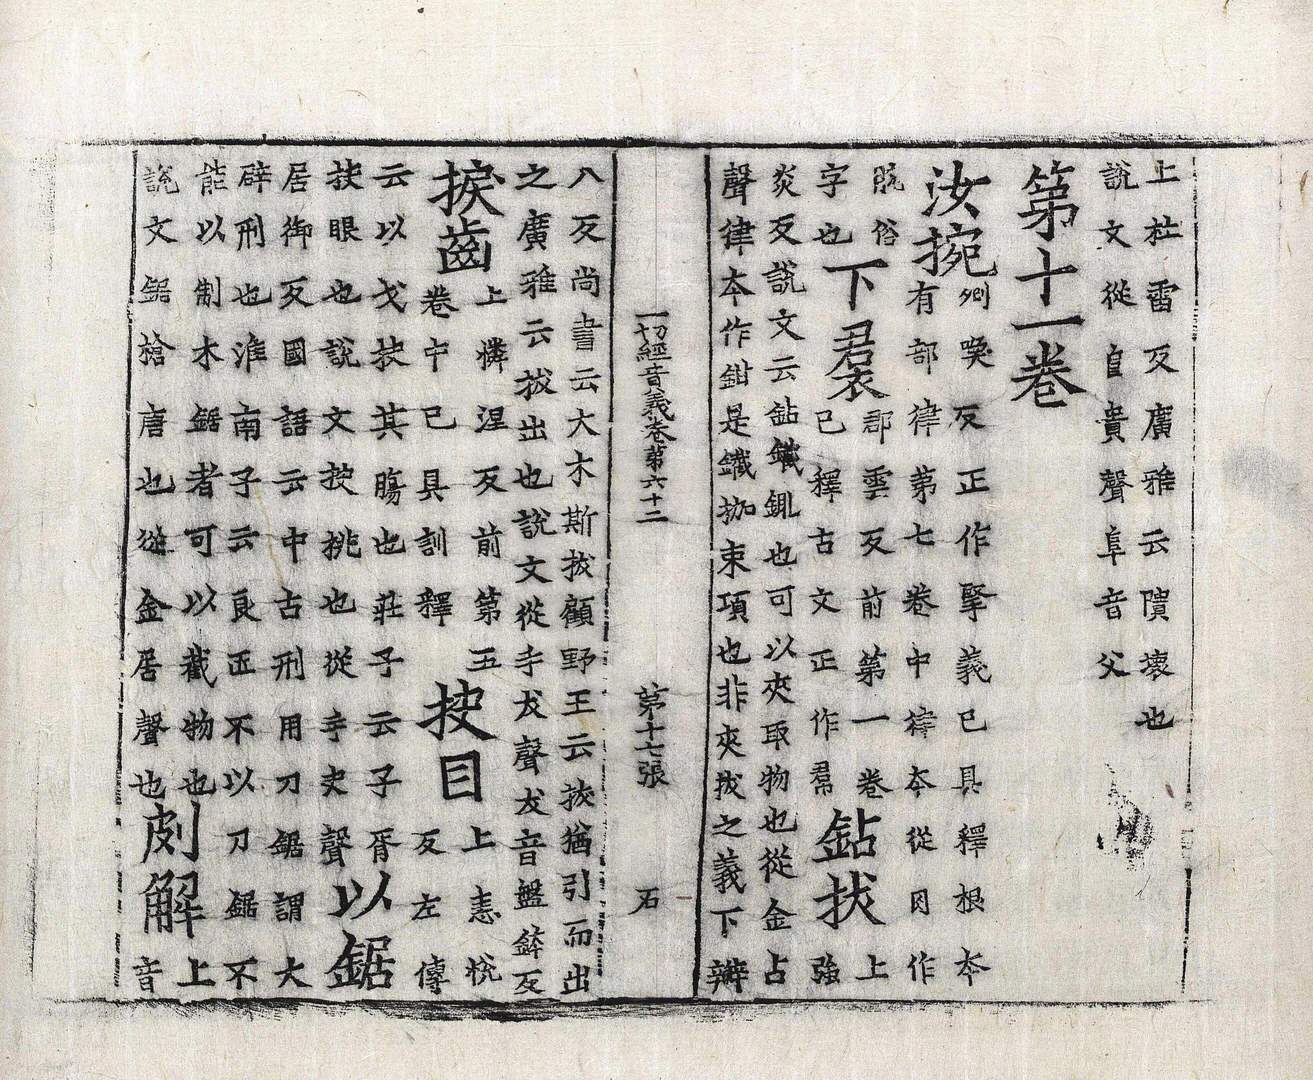 上杜雷反廣雅云隤壞也
說文從𨸏貴聲阜音父
第十一卷
汝捥
剜喚反正作掔義已具釋根本
有部律第七卷中律本從月作
脘俗
字也
下裠
郡雲反前第一卷上
已釋古文正作帬
鉆拔
強
炎反說文云鉆鐵鈮也可以夾取物也從金占
聲律本作鉗是鐵拁束項也非夾拔之義下辦
一切經音義卷第六十二
第十七張
石
八反尚書云大木斯拔顧野王云拔猶引而出
之廣雅云拔出也說文從手犮聲犮音盤鉢反
捩齒
上憐涅反前第五
卷中已具訓釋
挍目
上恚悅
反左傳
云以戈抉其膓也莊子云子胥
抉眼也說文挍挑也從手夬聲
以鋸
居御反國語云中古刑用刀鋸謂大
辟刑也淮南子云良匠不以刀鋸不
能以制木鋸者可以截物也
說文鋸槍唐也從金居聲也
剫解
上
音